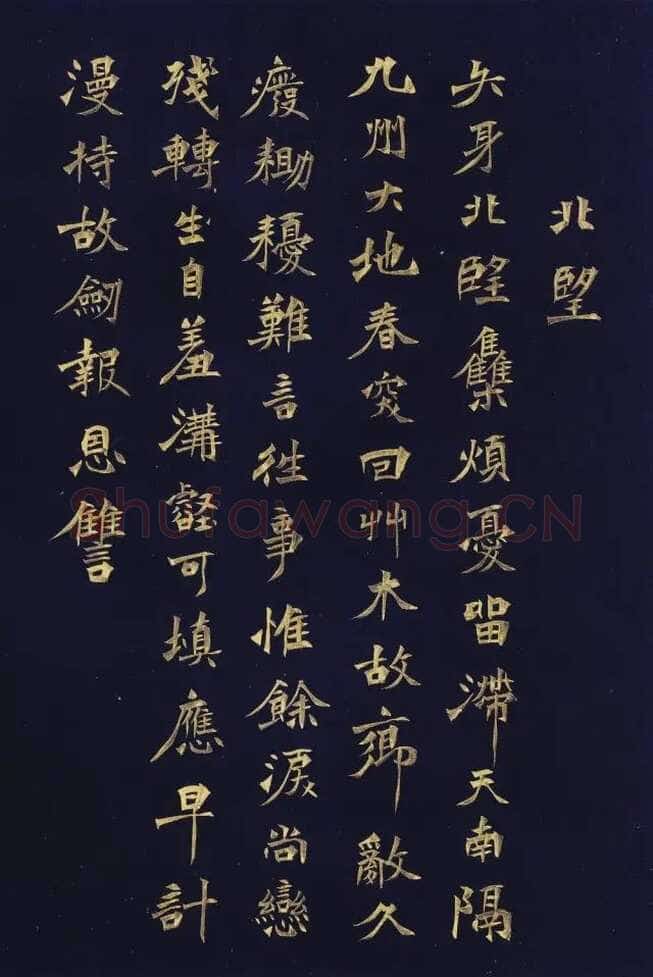 北朢
身北朢雧煩憂留滯天南隔
九州大地春罙回艸木故鄉亂久
癈耡耰難言往事惟餘淚尚戀
殘轉生自羞溝壑可填應早計
漫持故劒報恩讐
Shufawang.CN